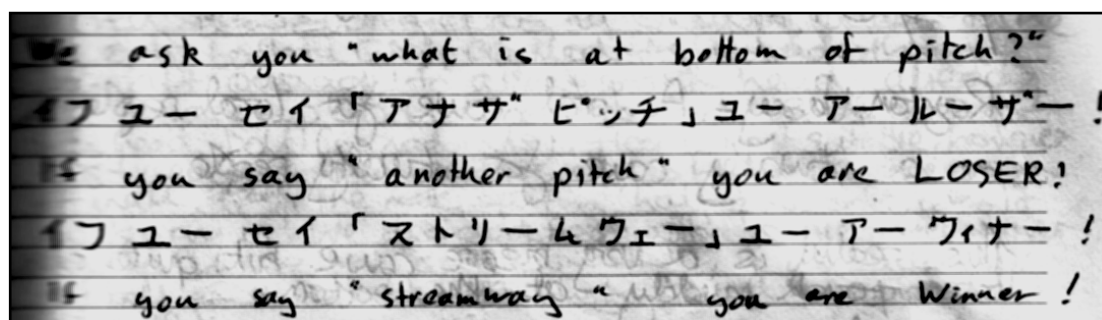 ask you "what is at bottom of pitch?"
イフ ユー セイ 「アナザ ピッチ」 ユー アー ルーザー !
If you say "another pitch" you are LOSER!
イフ ユー セイ 「ストリームウェー」 ユー アー ウィナー !
If you say "streamway" you are Winner !